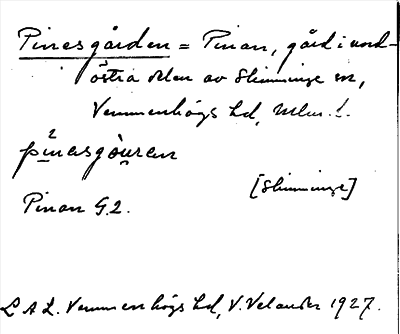 Pinesgården = Pinan, gård i nord-
östra delen av Skimminge sn,
Vemmenhögs hd, Mlm. l.
pinasgåuren
[Skimminge]
Pinan G.2.
L A L. Vemmenhögs hd, V. Velander 1927.